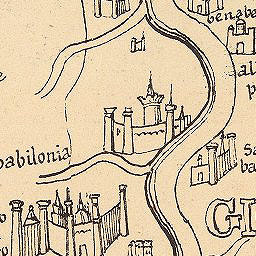 benaba
al
p
babilonia
Sa
ba
GI